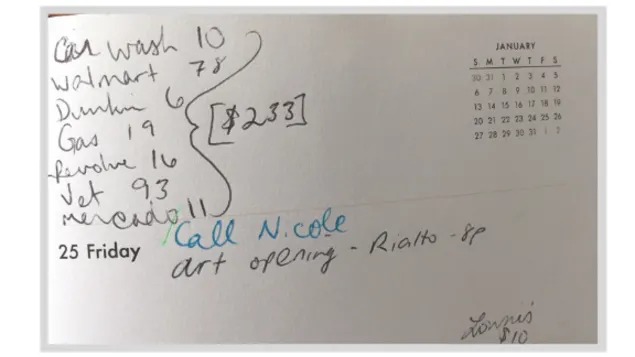 Car wash 10
Walmart 78
Dunkin 6
Gas 19
Revolve 16
Vet 93
mercado 11
[$233]
JANUARY
S M T W T F S
30 31 1 2 3 4 5
6 7 8 9 10 11 12
13 14 15 16 17 18 19
20 21 22 23 24 25 26
27 28 29 30 31 1 2
Call Nicole
25 Friday
art opening - Rialto - 8p
$10